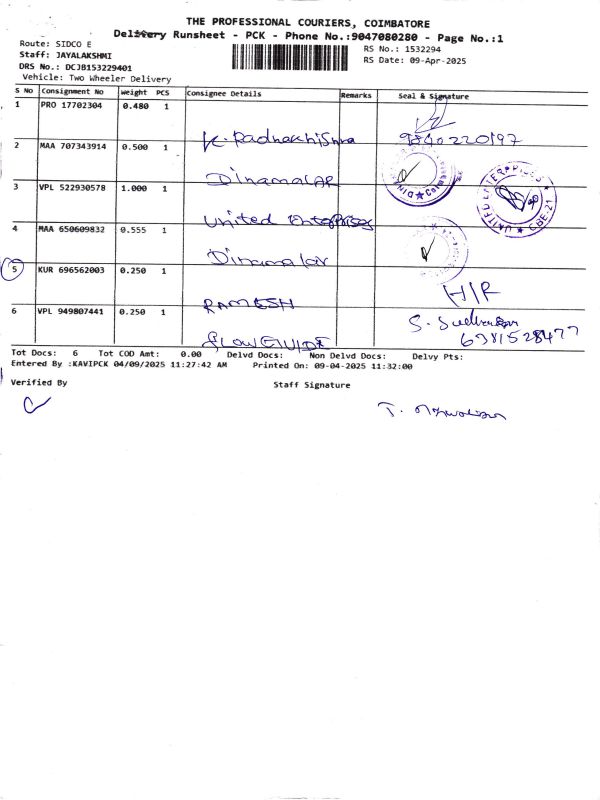 THE PROFESSIONAL COURIERS, COIMBATORE
Delivery Runsheet - PCK - Phone No.:9047080280 - Page No.:1
Route: SIDCO E
RS No.: 1532294
Staff: JAYALAKSHMI
RS Date: 09-Apr-2025
DRS No.: DCJB153229401
Vehicle: Two Wheeler Delivery
S No Consignment No Weight PCS Consignee Details Remarks Seal & Signature
1 PRO 17702304 0.480 1
K. Radhakrishna 9840220197
2 MAA 707343914 0.500 1
Dinamalar
3 VPL 522930578 1.000 1
UNITED ENTERPRISES CBE-21
United Enterprises
4 MAA 650609832 0.555 1
Dinamalar
5 KUR 696562003 0.250 1
RAMESH H/R
6 VPL 949807441 0.250 1
FLOWGUIDE
6381528477
Tot Docs: 6 Tot COD Amt: 0.00 Delvd Docs: Non Delvd Docs: Delvy Pts:
Entered By :KAVIPCK 04/09/2025 11:27:42 AM Printed On: 09-04-2025 11:32:00
Verified By Staff Signature